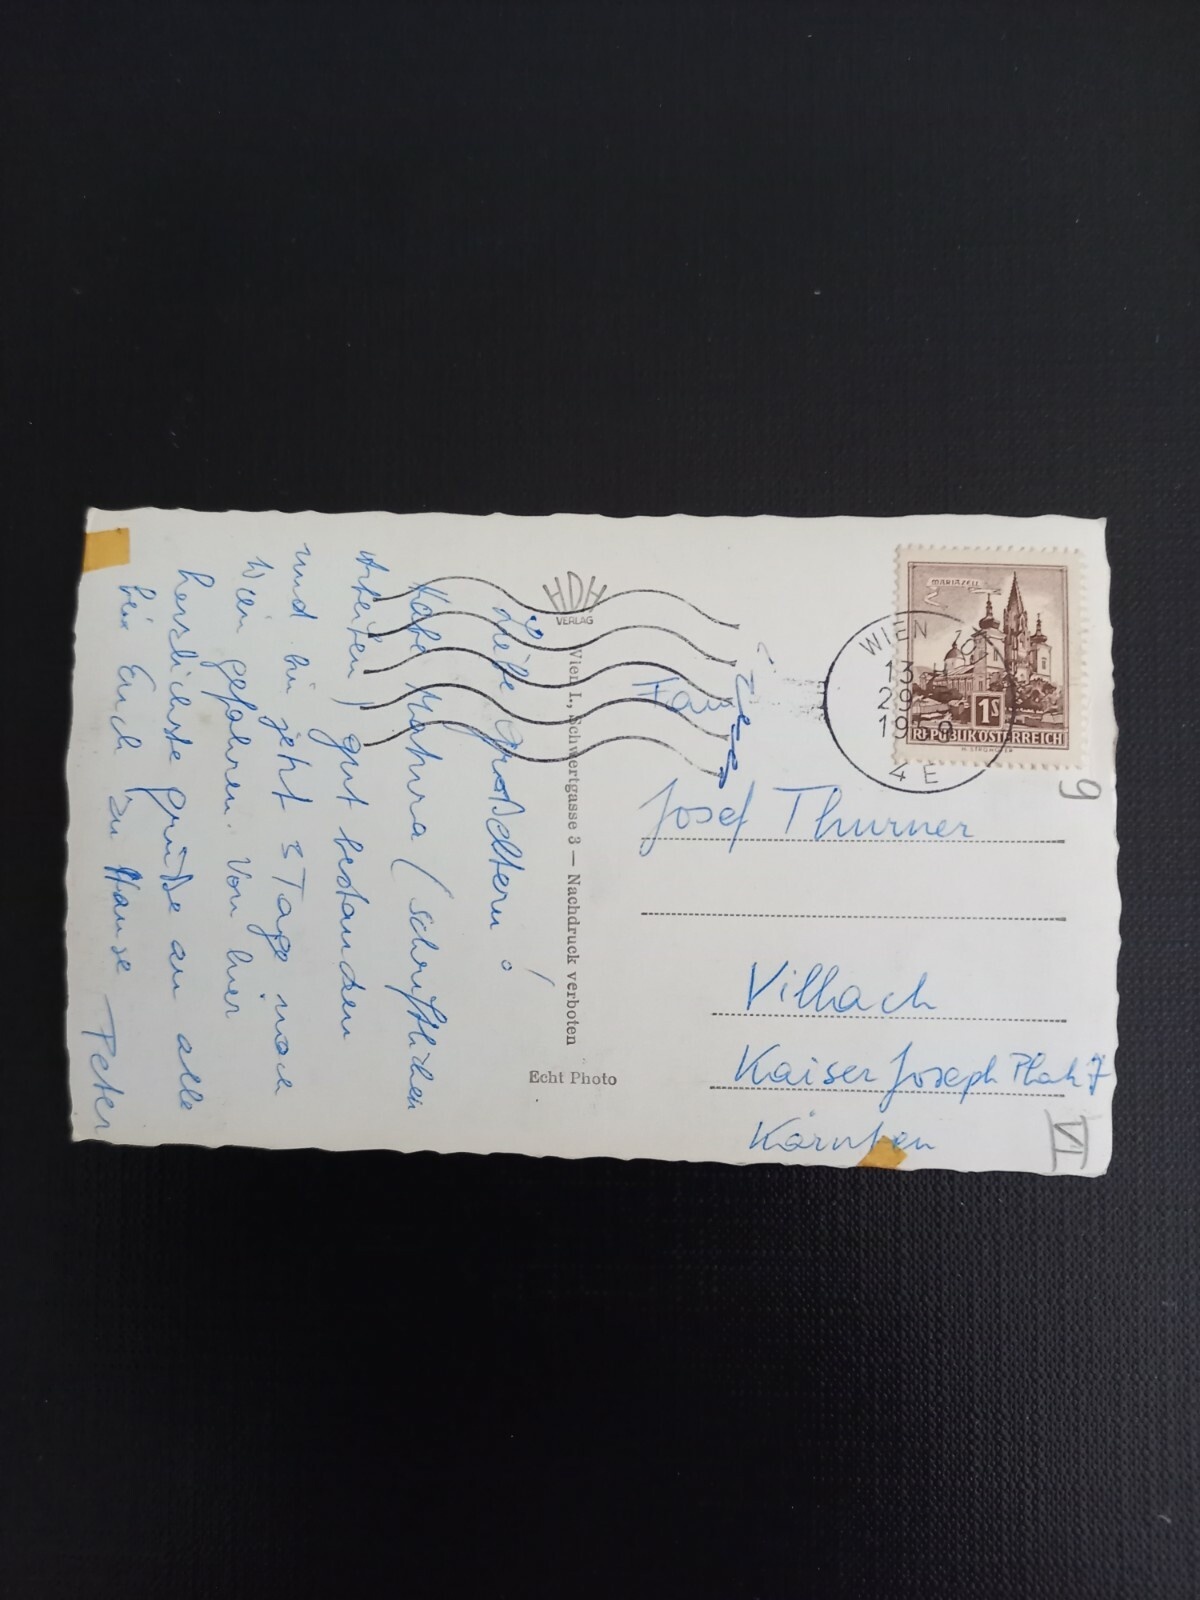 Liebe Großeltern!
Habe Mathura (schriftlichen
Arbeiten) gut bestanden
und bin jetzt 3 Tage nach
Wien gefahren. Von hier
herzlichste Grüße an alle
bei Euch zu Hause
Peter
HDH
VERLAG
Wien I., Schwertgasse 3 — Nachdruck verboten
Echt Photo
MARIAZELL
1S
REPUBLIK ÖSTERREICH
WIEN
13
29
4E
Josef Thurner
Villach
Kaiser Joseph Platz 7
Kärnten
9
VI